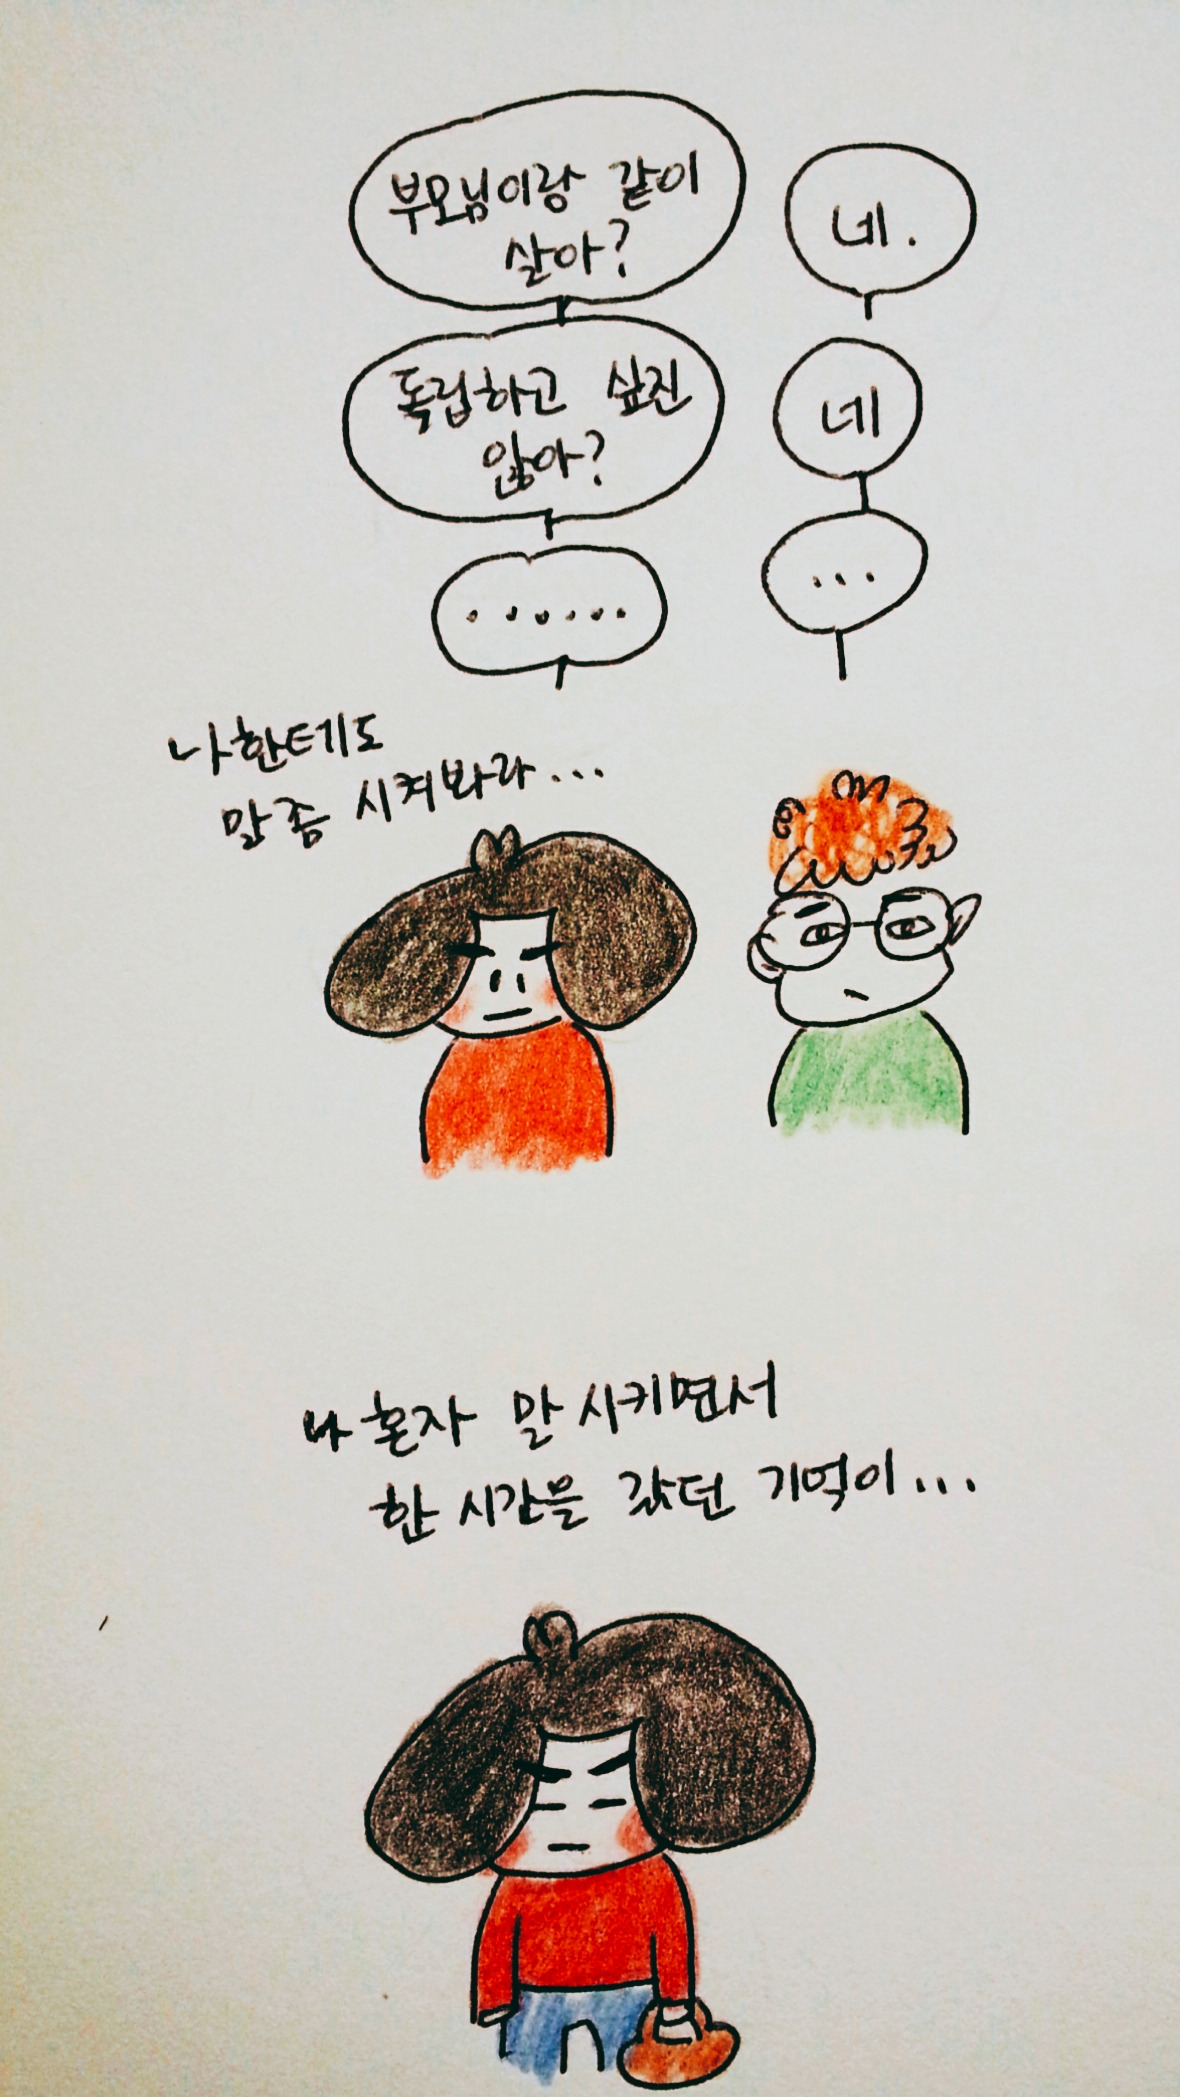 부모님이랑 같이
살아?
네.
독립하고 싶진
않아?
네
......
...
나한테도
말 좀 시켜봐라...
나 혼자 말 시키면서
한 시간을 갔던 기억이...